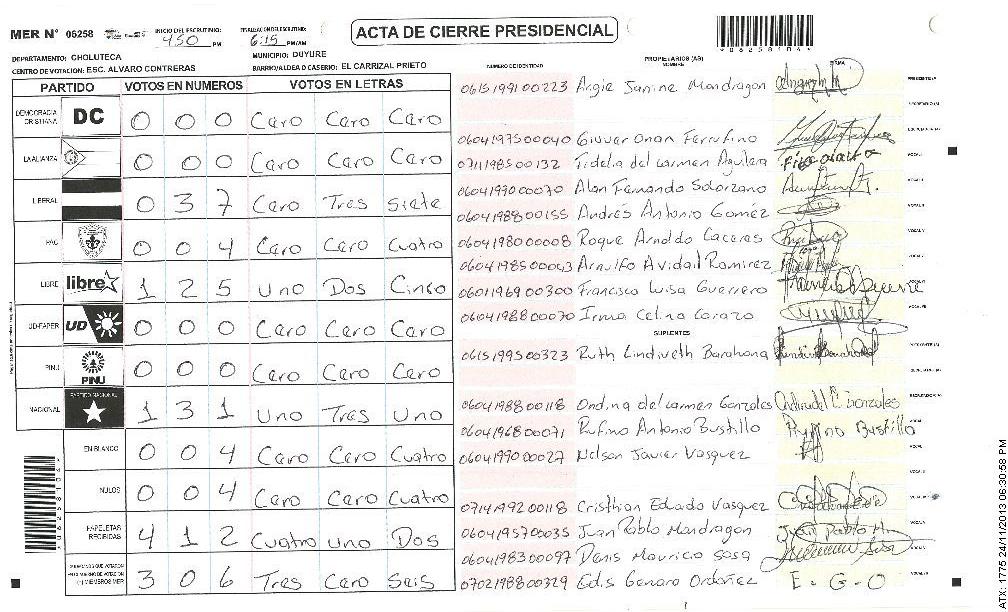 ACTA DE CIERRE PRESIDENCIAL
MER N° 06258
INICIO DEL ESCRUTINIO: 4:50 PM
FINALIZACION ESCRUTINIO: 6:15 PM/AM
DEPARTAMENTO: CHOLUTECA
MUNICIPIO: DUYURE
CENTRO DE VOTACION: ESC. ALVARO CONTRERAS
BARRIO/ALDEA O CASERIO: EL CARRIZAL PRIETO
PARTIDO VOTOS EN NUMEROS VOTOS EN LETRAS
DEMOCRACIA CRISTIANA DC 0 0 0 Caro Caro Caro
LA ALIANZA 0 0 0 Caro Caro Caro
LIBERAL 0 3 7 Caro Tres Siete
PAC 0 0 4 Caro Caro Cuatro
LIBRE libre 1 2 5 Uno Dos Cinco
UD-FAPER UD 0 0 0 Caro Caro Caro
PINU PINU 0 0 0 Caro Caro Caro
NACIONAL PARTIDO NACIONAL 1 3 1 Uno Tres Uno
EN BLANCO 0 0 4 Caro Caro Cuatro
NULOS 0 0 4 Caro Caro Cuatro
PAPELETAS RECIBIDAS 4 1 2 Cuatro uno Dos
3 0 6 Tres Caro Seis
NUMERO DE IDENTIDAD PROPIETARIOS (AS) NOMBRE FIRMA
0615199100223 Angie Janine Mondragon
0604197500040 Giuver Onan Ferrufino
0711198500132 Fidelia del carmen Aguilera
0604199000070 Alan Fernando Solorzano
0604198800155 Andrés Antonio Gomez
0604198000008 Roque Arnoldo Caceres
0604198500043 Arnulfo Avidail Ramirez
0601196900300 Francisco Luisa Guerrero
0604198800070 Irma Celina Corazo
SUPLENTES
0615199500323 Ruth Lindiveth Barahona
0604198800118 Ondina del carmen Gonzales
0604196800071 Rufino Antonio Bustillo Rufino Bustillo
0604199000027 Nelson Javier Vasquez
0714199200118 Cristhian Eduado Vasquez
0604195700035 Juan Pablo Mondragon Juan Pablo M.
0604198300097 Denis Mauricio Sosa
0702198800329 Edis Genaro Ordoñez E-G-O
ATX: 1775 24/11/2013 06:30:58 PM